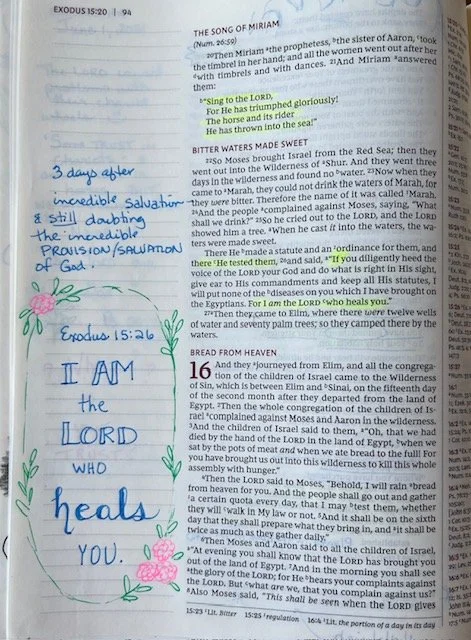 EXODUS 15:20 | 94
3 days after
incredible salvation
& still doubting
the incredible
PROVISION/SALVATION
of God.
Exodus 15:26
I AM
the
LORD
WHO
heals
YOU.
THE SONG OF MIRIAM
(Num. 26:59)
20Then Miriam athe prophetess, bthe sister of Aaron, ctook
the timbrel in her hand; and all the women went out after her
dwith timbrels and with dances. 21And Miriam aanswered
them:
b"Sing to the LORD,
For He has triumphed gloriously!
The horse and its rider
He has thrown into the sea!"
BITTER WATERS MADE SWEET
22So Moses brought Israel from the Red Sea; then they
went out into the Wilderness of aShur. And they went three
days in the wilderness and found no bwater. 23Now when they
came to aMarah, they could not drink the waters of Marah, for
they were bitter. Therefore the name of it was called 1Marah.
24And the people acomplained against Moses, saying, "What
shall we drink?" 25So he cried out to the LORD, and the LORD
showed him a tree. aWhen he cast it into the waters, the wa-
ters were made sweet.
There He bmade a statute and an 1ordinance for them, and
there cHe tested them, 26and said, a"If you diligently heed the
voice of the LORD your God and do what is right in His sight,
give ear to His commandments and keep all His statutes, I
will put none of the bdiseases on you which I have brought on
the Egyptians. For I am the LORD cwho heals you."
27aThen they came to Elim, where there were twelve wells
of water and seventy palm trees; so they camped there by the
waters.
BREAD FROM HEAVEN
16 And they ajourneyed from Elim, and all the congrega-
tion of the children of Israel came to the Wilderness
of Sin, which is between Elim and bSinai, on the fifteenth day
of the second month after they departed from the land of
Egypt. 2Then the whole congregation of the children of Is-
rael acomplained against Moses and Aaron in the wilderness.
3And the children of Israel said to them, a"Oh, that we had
died by the hand of the LORD in the land of Egypt, bwhen we
sat by the pots of meat and when we ate bread to the full! For
you have brought us out into this wilderness to kill this whole
assembly with hunger."
4Then the LORD said to Moses, "Behold, I will rain abread
from heaven for you. And the people shall go out and gather
1a certain quota every day, that I may btest them, whether
they will cwalk in My law or not. 5And it shall be on the sixth
day that they shall prepare what they bring in, and ait shall be
twice as much as they gather daily."
6Then Moses and Aaron said to all the children of Israel,
a"At evening you shall know that the LORD has brought you
out of the land of Egypt. 7And in the morning you shall see
athe glory of the LORD; for He bhears your complaints against
the LORD. But cwhat are we, that you complain against us?"
8Also Moses said, "This shall be seen when the LORD gives
15:23 1Lit. Bitter 15:25 1regulation 16:4 1Lit. the portion of a day in its day